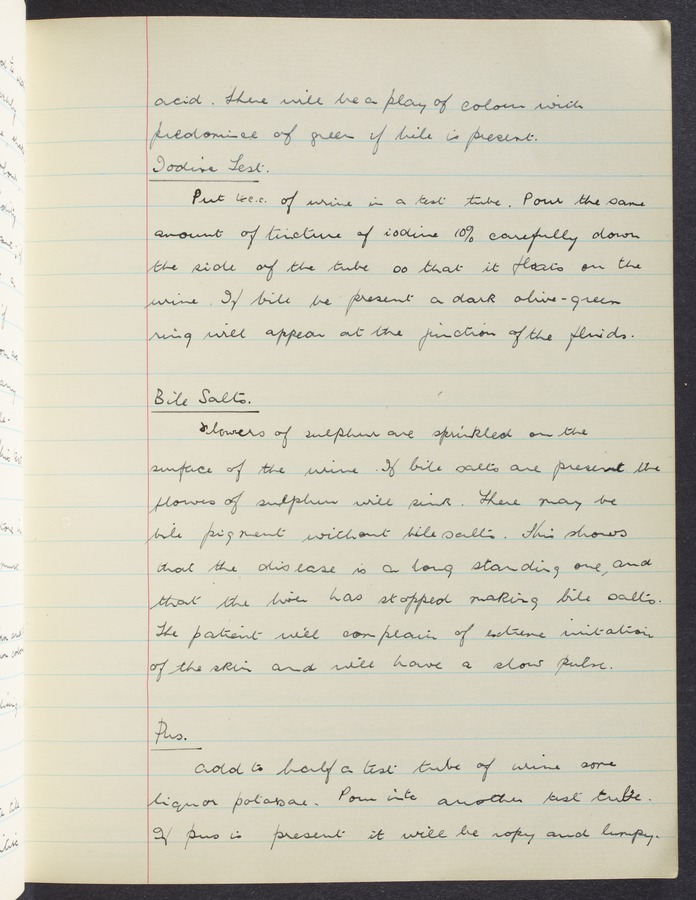 acid. There will be a play of colour with
predomince of green if bile is present.
Iodine Test.
Put c.c. of urine in a test tube. Pour the same
amount of tincture of iodine 10% carefully down
the side of the tube so that it floats on the
urine. If bile be present a dark olive-green
ring will appear at the junction of the fluids.
Bile Salts.
Flowers of sulphur are sprinkled on the
surface of the urine. If bile salts are present the
flowers of sulphur will sink. There may be
bile pigment without bile salts. This shows
that the disease is a long standing one, and
that the liver has stopped making bile salts.
The patient will complain of extreme irritation
of the skin and will have a slow pulse.
Pus.
Add to half a test tube of urine some
liquor potassae. Pour into another test tube.
If pus is present it will be ropy and lumpy.